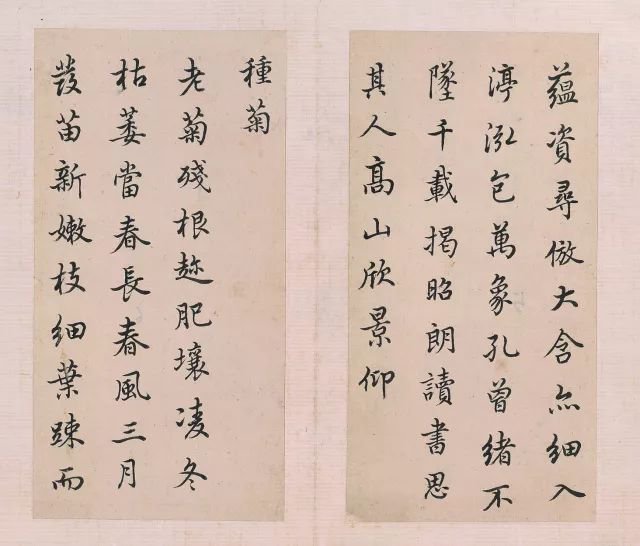 蘊資尋倣大含亦細入
渟泓包萬象孔曾緒不
墜千載揭昭朗讀書思
其人髙山欣景仰
種菊
老菊殘根趂肥壤凌冬
枯萎當春長春風三月
發苗新嫩枝細葉疎而